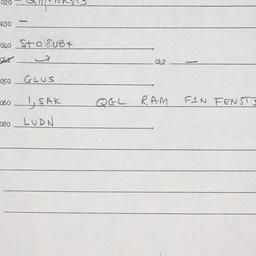 020
030 —
040 St08UBt
042 —
050 GLUS
060 1, SAK QGL RAM FIN FENST
080 LUDN